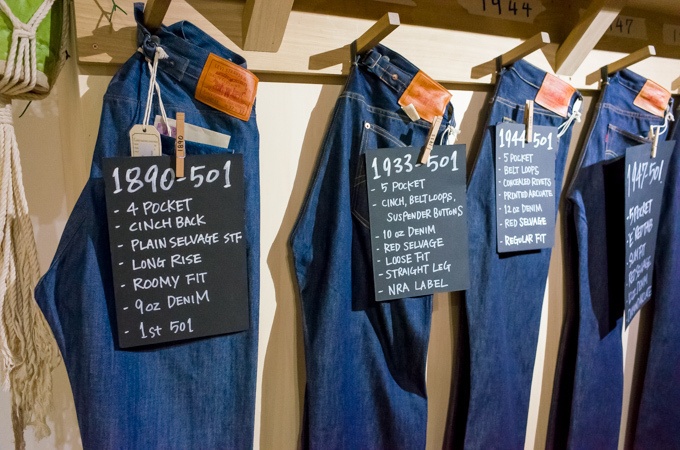 1944
1947
1890-501
- 4 POCKET
- CINCH BACK
- PLAIN SELVAGE STF
- LONG RISE
- ROOMY FIT
- 9oz DENIM
- 1st 501
1890
1933-501
- 5 POCKET
- CINCH, BELT LOOPS,
SUSPENDER BUTTONS
- 10 oz DENIM
- RED SELVAGE
- LOOSE FIT
- STRAIGHT LEG
- NRA LABEL
1944-501
- 5 POCKET
- BELT LOOPS
- CONCEALED RIVETS
- PRINTED ARCUATE
- 12 oz DENIM
- RED SELVAGE
- REGULAR FIT
1947-501
- 5 POCKET
- SLIM FIT
- RED SELVAGE